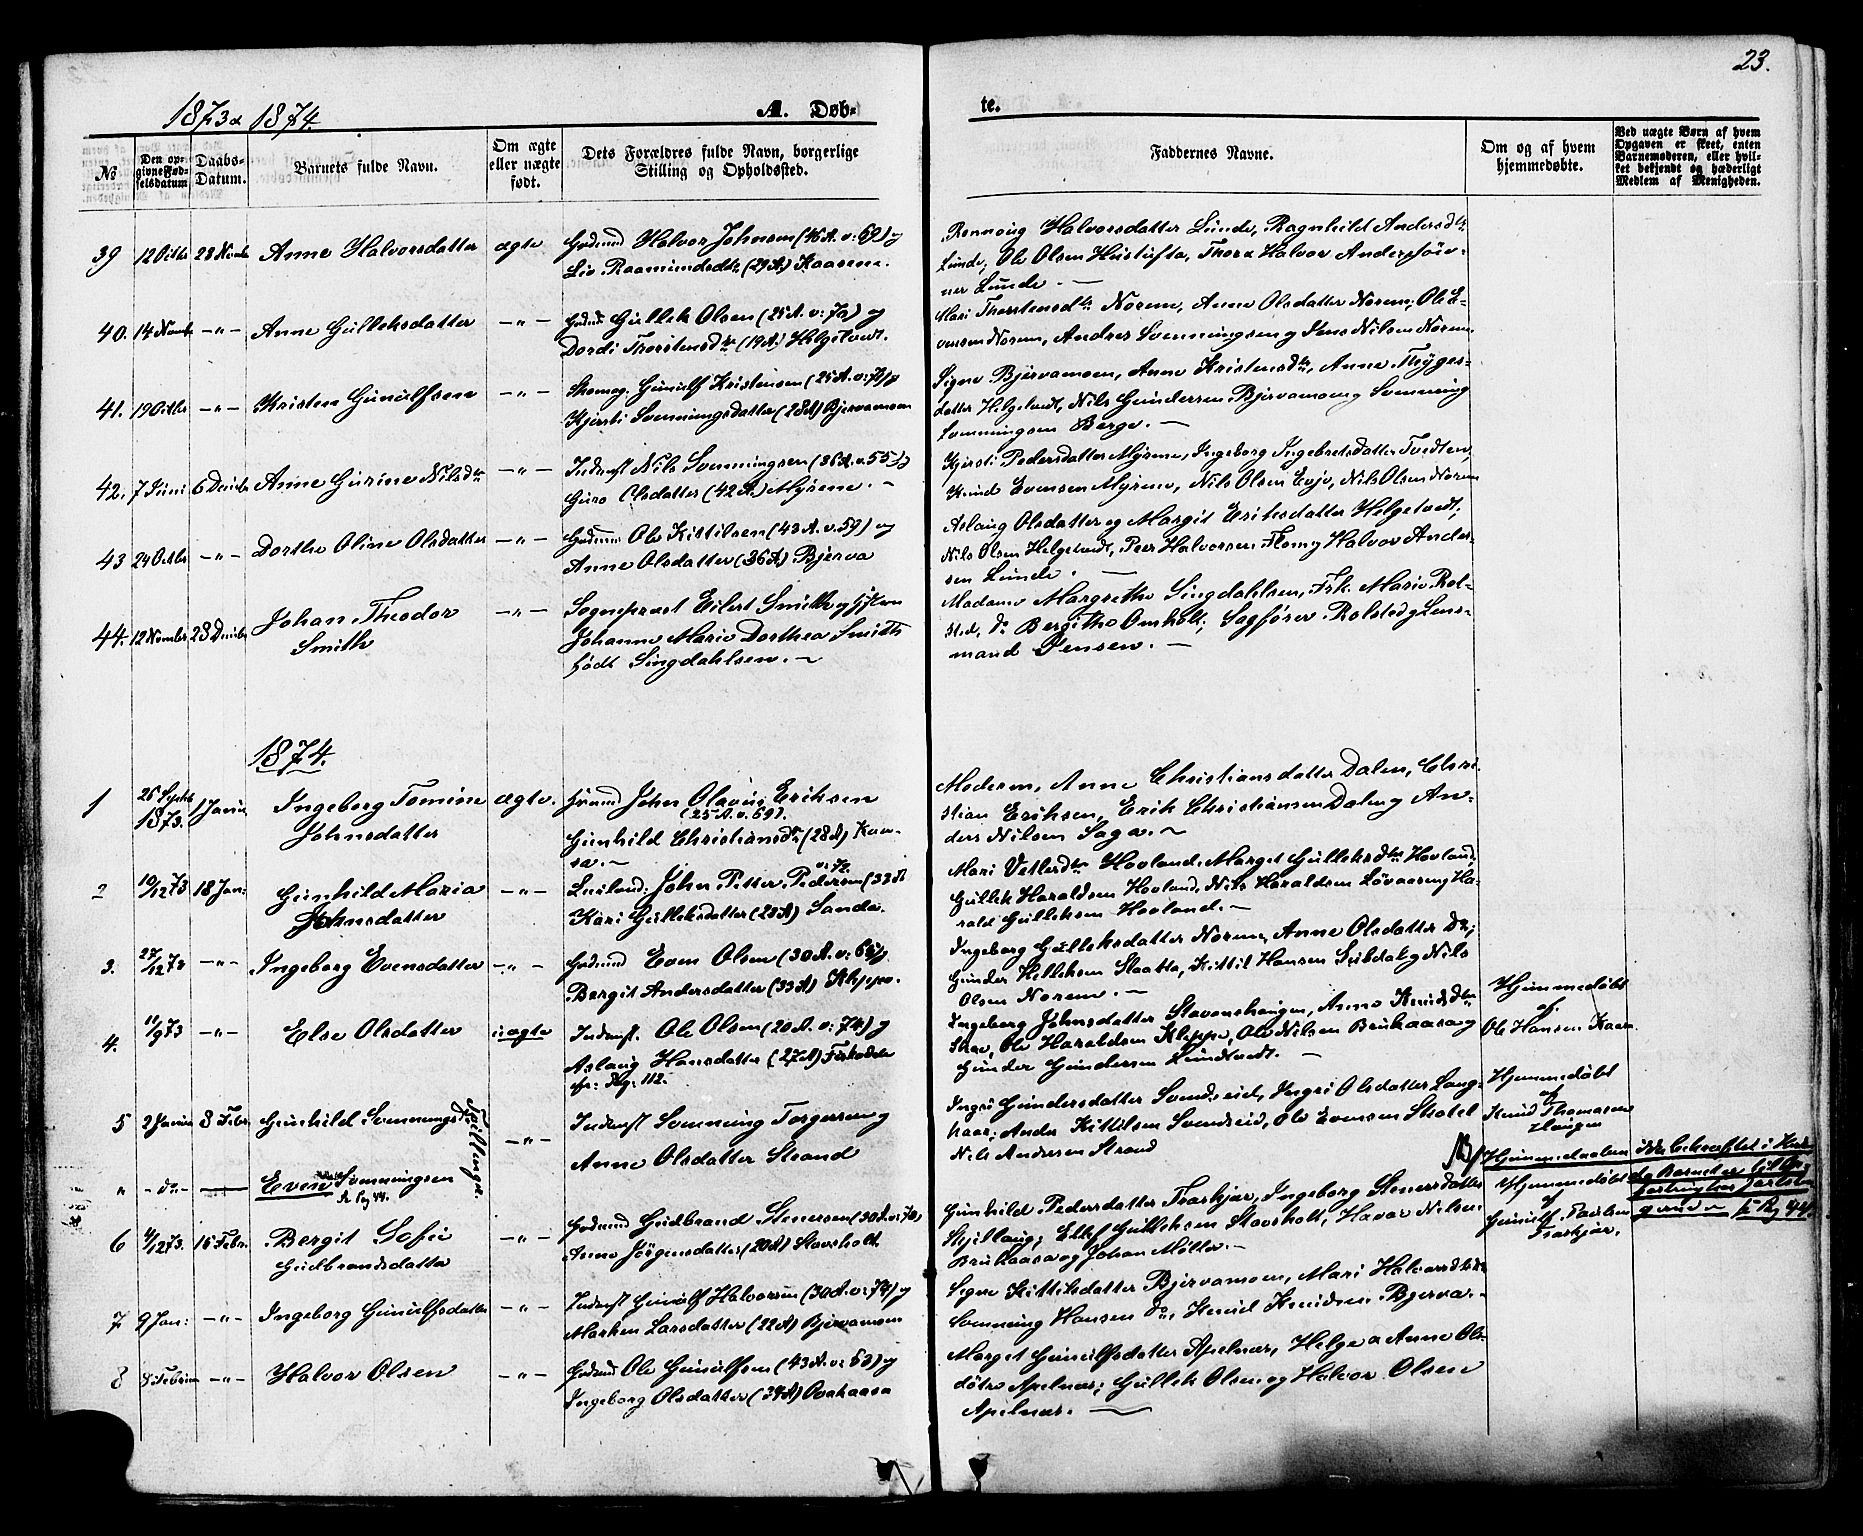 23.
1873 & 1874.
A. Døb-
te.
№
Den op-
givne Fød-
selsdatum
Daabs-
Datum.
Barnets fulde Navn.
Om ægte
eller uægte
født.
Dets Forældres fulde Navn, borgerlige
Stilling og Opholdssted.
Faddernes Navne.
Om og af hvem
hjemmedøbte.
Ved uægte Børn af hvem
Opgaven er skeet, enten
Barnemoderen, eller hvil-
ket bekjendt og hæderligt
Medlem af Menigheden.
39 12 Octbr 23 Novbr Anne Halvorsdatter ægte
Gbrmd Halvor Johnsen (46 A. v: 69) og
Liv Raamundsdtr (29 A.) Kaasene.
Rønnoug Halvorsdatter Lunde, Ragnhild Andersdtr
Lunde, Ole Olsen Hustufta, Thor & Halvor Anderssøn-
ner Lunde. —
40. 14 Novbr —"— Anne Gulleksdatter —"—
Gullek Olsen (25 A. v: 72) og
Dordi Thorstensdtr (19 A.) Helgetvedt.
Mari Thorstensdtr Norem, Anne Olsdatter Norem, Ole E-
vensen Norem, Andres Svenningsen og Jens Nilsen Norem
41. 19 Octbr —"— Kristen Gunulfsen —"—
Skomag. Gunulf Kristensen (25 A. v: 71) og
Kjersti Svenningsdatter (28 A) Bjervamoen
Signe Bjervamoen, Anne Kristensdtr, Anne Thyges-
datter Helgetvedt, Nils Gundersen Bjervamoen, Svenning
Svenningsen Berge. —
42. 7 Juni 6 Decbr Anne Gurine Nilsdtr —"—
Inderst Nils Svenningsen (36 A. v. 55) og
Guro Olsdatter (42 A.) Myrene. —
Kjersti Pedersdatter Myrene, Ingeborg Ingebretsdatter Tvedten
Knud Evensen Myrene, Nils Olsen Evju, Nils Olsen Norem
43 24 Octbr —"— Dorthe Oline Olsdatter —"—
Gbrmd Ole Kittilsen (43 A. v. 59) og
Anne Olsdatter (36 A) Bjerva
Aslaug Olsdatter og Margit Eriksdatter Helgetvedt,
Nils Olsen Helgetvedt, Peer Halvorsen Flom og Halvor Ander-
sen Lunde. —
44. 12 Novembr 28 Decbr Johan Theodor
Smith —"—
Sognepræst Eilert Smith og Hustru
Johanne Marie Dorthea Smith
født Singdahlsen. —
Madame Margrethe Singdahlsen, Frk. Marie Rol-
sted, do Bergithe Omholt, Sagfører Rolsted og Lens-
mand Jensen. —
1874.
1 26 Septb
1873. 1 Januar Ingeborg Tomine
Johnsdatter ægte.
Gbrmd John Olavus Eriksen
(25 A. v. 69).
Gunhild Christiansdtr (28 A) Kaa-
sa. —
Moderen, Anne Christiansdatter Dalen, Chri-
stian Eriksen, Erik Christiansen Dalen og An-
ders Nilsen Saga. —
2 10/12 73 18 Jan: Gunhild Maria
Johnsdatter —"—
v: 72.
John Petter Pedersen (33 A
Kari Gulleksdatter (23 A) Sande.
Mari Vetlesdtr Hovland, Marget Gulleksdtr Hovland,
Gullek Haraldsen Hovland, Nils Haraldsen Løvaasen og Ha-
rald Gulleksen Hovland. —
3. 27/12 73 —"— Ingeborg Evensdatter —"—
Gbrmd Even Olsen (30 A. v: 68) og
Bergit Andersdatter (33 A) Kleppe.
Ingeborg Gulleksdatter Norem, Anne Olsdatter do,
Gunder Kittilsen Slaatta, Kittil Hansen Sildal og Nils
Olsen Norem. —
4. 11/9 73 —"— Else Olsdatter uægte
Inderst. Ole Olsen (20 A. v: 74) og
Aslaug Hansdatter (27 A)
cfr: Pag: 112.
Ingeborg Johnsdatter Stavnshaugen, Anne Knudsdtr
Ole Haraldsen Kleppe, Ole Nilsen Brukaasa og
Gunder Gundersen Lundtvedt. —
Hjemmedøbt
af
Ole Hansen Kaasa
5 2 Januar 8 Febr. Gunhild Svenningsd. Tvillinger —"—
Inderst Svenning Torgersen og
Anne Olsdatter Strand
Ingri Gundersdatter Svendseid, Ingri Olsdatter Lang-
kaas, Anders Kittilsen Svendseid, Ole Evensen Skotel
Nils Andersen Strand
Hjemmedøbt
af
Knud Thomasen
Haugen
" – do – — Even Svenningsen
Pag 44.
NB/ Hjemmedaaben ikke bekræftet i Kirke
da Barnet
Pag 44.
6 4/12 73. 15 Febr. Bergit Sofie
Gudbrandsdatter —"—
Gbrmd Gudbrand Stenersen (30 A. v: 72)
Anne Jørgensdatter (20 A) Stavsholt
Gunhild Pedersdatter Traskjær, Ingeborg Stenersdatter
Skjellaug, Ellef Gulleksen Stavsholt, Havor Nilsen
Brukaasa og Johan Møller. —
Hjemmedøbt
af
Gunulf Paulsen
Traskjær.
7 9 Jan: —"— Ingeborg Gunulfsdatter —"—
Inderst Gunulf Halvorsen (30 A. v: 74) og
Marken Larsdatter (22 A) Bjervamoen
Signe Kittilsdatter Bjervamoen, Mari Halvorsdatter
Svenning Hansen do, Knud Knudsen Bjerva. —
8 8 Februar —"— Halvor Olsen —"—
Gbrmd Ole Gunulfsen (43 A. v: 53) og
Ingeborg Olsdatter (39 A) Ovekaasa
Marget Gunulfsdatter Apelnær, Helge & Anne Ols-
døtre Apelnær, Gullek Olsen og Halvor Olsen
Apelnær. —